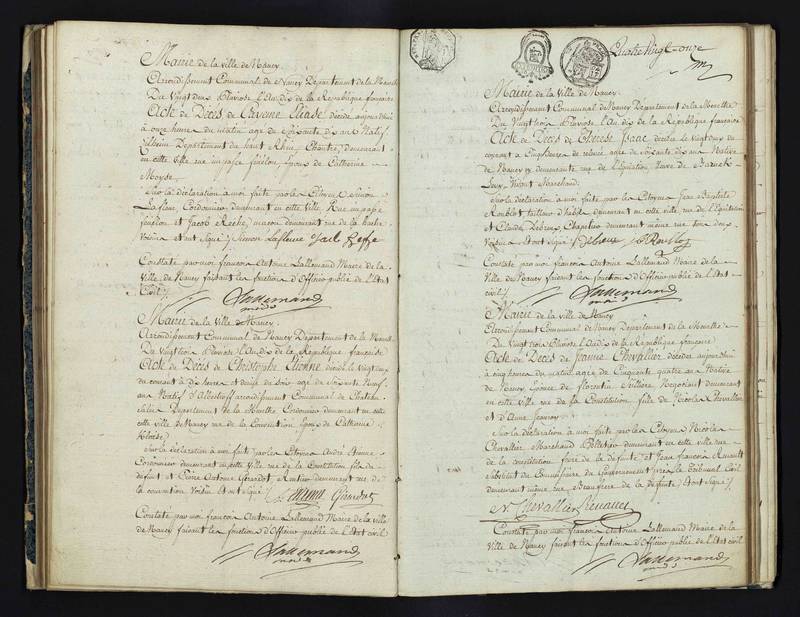 Mairie de la ville de Nancy.
Arrondissement Communal de Nancy Département de la Meurthe
Du Vingt deux Pluviose l'an dix de la République française
Acte de Décès de Cayenne Eliase décédé aujourd'hui
à onze heures du matin agé de soixante dix ans Natif
Département du haut Rhin, Chantre, demeurant
en cette Ville rue impasse fénélon, Epoux de Catherine
Moyse.
Sur la déclaration à moi faite par les Citoyens Simon
Lafleur Cordonnier demeurant en cette Ville Rue impasse
fénélon et Jacob Reche, maçon demeurant rue de la
Voisins et ont signé / Simon Lafleure
Constaté par moi françois Antoine Lallemand Maire de la
Ville de Nancy faisant les fonctions d'Officier public de l'État
Civil /.
Lallemand
Mairie de la ville de Nancy.
Arrondissement Communal de Nancy Département de la Meurthe
Du Vingt trois Pluviose l'an dix de la République française
Acte de Décès de Christophe Etienne décédé le Vingt deux
du courant à dix heures et demie du soir agé de soixante Neuf
ans Natif d'Albestroff arrondissement Communal de Chateau
Salins Département de la Meurthe Cordonnier demeurant en cette
cette ville de Nancy rue de la Convention Epoux de Catherine
Sur la déclaration à moi faite par les Citoyens André Etienne
Cordonnier demeurant en cette Ville rue de la Constitution fils du
défunt et Pierre Antoine Girardot, demeurant rue de
la convention Voisin et ont signé / Etienne Girardot
Constaté par moi francois Antoine Lallemand Maire de la ville
de Nancy faisant les fonctions d'Officier public de l'État civil
Lallemand
Quatre Vingt-onze
Mairie de la Ville de Nancy.
Arrondissement Communal de Nancy Département de la Meurthe
Du Vingt trois Pluviose l'an dix de la République française
Acte de Décès de Therese Isaac décédée le Vingt deux du
courant à heures de relevée agée de soixante dix ans Native
de Nancy y demeurante rue de l'Equitation Veuve de Baruch
Levy Vivant Marchand.
Sur la déclaration à moi faite par les Citoyens Jean Baptiste
Roublot tailleur d'habits demeurant en cette ville, rue de l'Equitation
et Claude Debrun, Chapelier demeurant même rue tous deux
Voisins et ont signé / Debrun Roublot
Constaté par moi françois Antoine Lallemand Maire de la
Ville de Nancy faisant les fonctions d'Officier public de l'État
civil /
Lallemand
Mairie de la Ville de Nancy
Arrondissement Communal de Nancy Département de la Meurthe
Du Vingt trois Pluviose l'an dix de la République française
Acte de Décès de Jeanne Chevallier décédée aujourd'hui
à cinq heures du matin agée de Cinquante quatre ans Native
de Nancy, Epouse de florentin Négociant demeurant
en cette Ville rue de la Constitution fille de Nicolas Chevallier
et d'Anne Jeanroy
Sur la déclaration à moi faite par les Citoyens Nicolas
Chevallier Marchand Pelletier demeurant en cette ville rue
de la constitution frère de la défunte et Jean françois Renault
Substitut du Commissaire du Gouvernement près le Tribunal Civil
demeurant même rue Beaufrère de la défunte, et ont signé /
N Chevallier Renault
Constaté par moi françois Antoine Lallemand Maire de la
Ville de Nancy faisant les fonctions d'Officier public de l'État civil
Lallemand